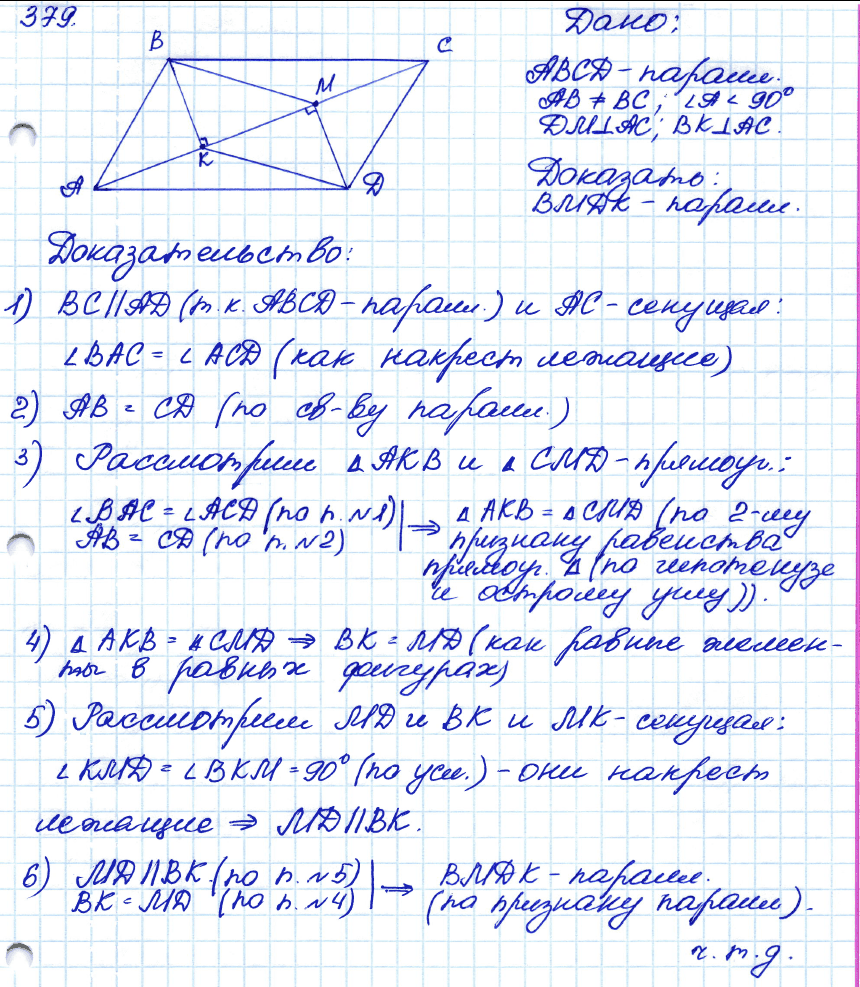 379.
Дано:
ABCD - паралл.
AB ≠ BC; ∠A < 90°
DM⊥AC; BK⊥AC.
Доказать:
BMDK - паралл.
B
C
M
K
A
D
Доказательство:
1) BC∥AD (т.к. ABCD - паралл.) и AC - секущая:
∠BAC = ∠ACD (как накрест лежащие)
2) AB = CD (по св-ву паралл.)
3) Рассмотрим △AKB и △CMD - прямоуг.:
∠BAC = ∠ACD (по п. №1) | ⇒ △AKB = △CMD (по 2-му
AB = CD (по п. №2) признаку равенства
прямоуг. △ (по гипотенузе
и острому углу)).
4) △AKB = △CMD ⇒ BK = MD (как равные элемен-
ты в равных фигурах)
5) Рассмотрим MD и BK и MK - секущая:
∠KMD = ∠BKM = 90° (по усл.) - они накрест
лежащие ⇒ MD∥BK.
6) MD∥BK (по п. №5) | ⇒ BMDK - паралл.
BK = MD (по п. №4) (по признаку паралл).
ч.т.д.